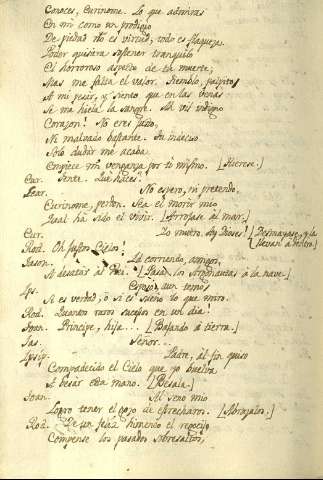 Conoces, Eurinome. Lo que admiras
En mi como un prodigio
De piedad no es virtud, todo es flaqueza.
Poder quisiera sostener tranquilo
El horroroso aspecto de tu muerte;
Mas me falta el valor. Tiemblo, palpito
A mi pesar, y siento que en las venas
Se me hiela la sangre. Ah vil indigno
Corazon! No eres justo,
Ni malvado bastante. Tu indeciso
Solo dudar me acaba.
Empiece mi venganza por ti mismo. [Hierese.]
Eur. Tente. Què haces?
Lear. No espero, ni pretendo,
Eurinome, perdon. Sea el morir mio
Qual ha sido el vivir. [Arrojase al mar.]
Eur. Yo muero. Ay Dioses! [Desmayase, y la
llevan à dentro.]
Rod. Oh justos Cielos!
Jason. Id corriendo, amigos,
A desatar al Rei. [Pasan los Argonautas à la nave.]
Ips. Esposo, aun temo
Si es verdad, ò si es sueño lo que miro.
Rod. Quantos raros sucesos en un dia!
Toan. Principe, hija... [Bajando à tierra.]
Jas. Señor..
Ipsip. Padre, al fin quiso
Compadecido el Cielo que yo buelva
A besar esta mano. [Besala.]
Toan. Al seno mio
Logro tener el gozo de estrecharos. [Abrazalos.]
Rod. De un feliz himeneo el regocijo
Compense los pasados sobresaltos,